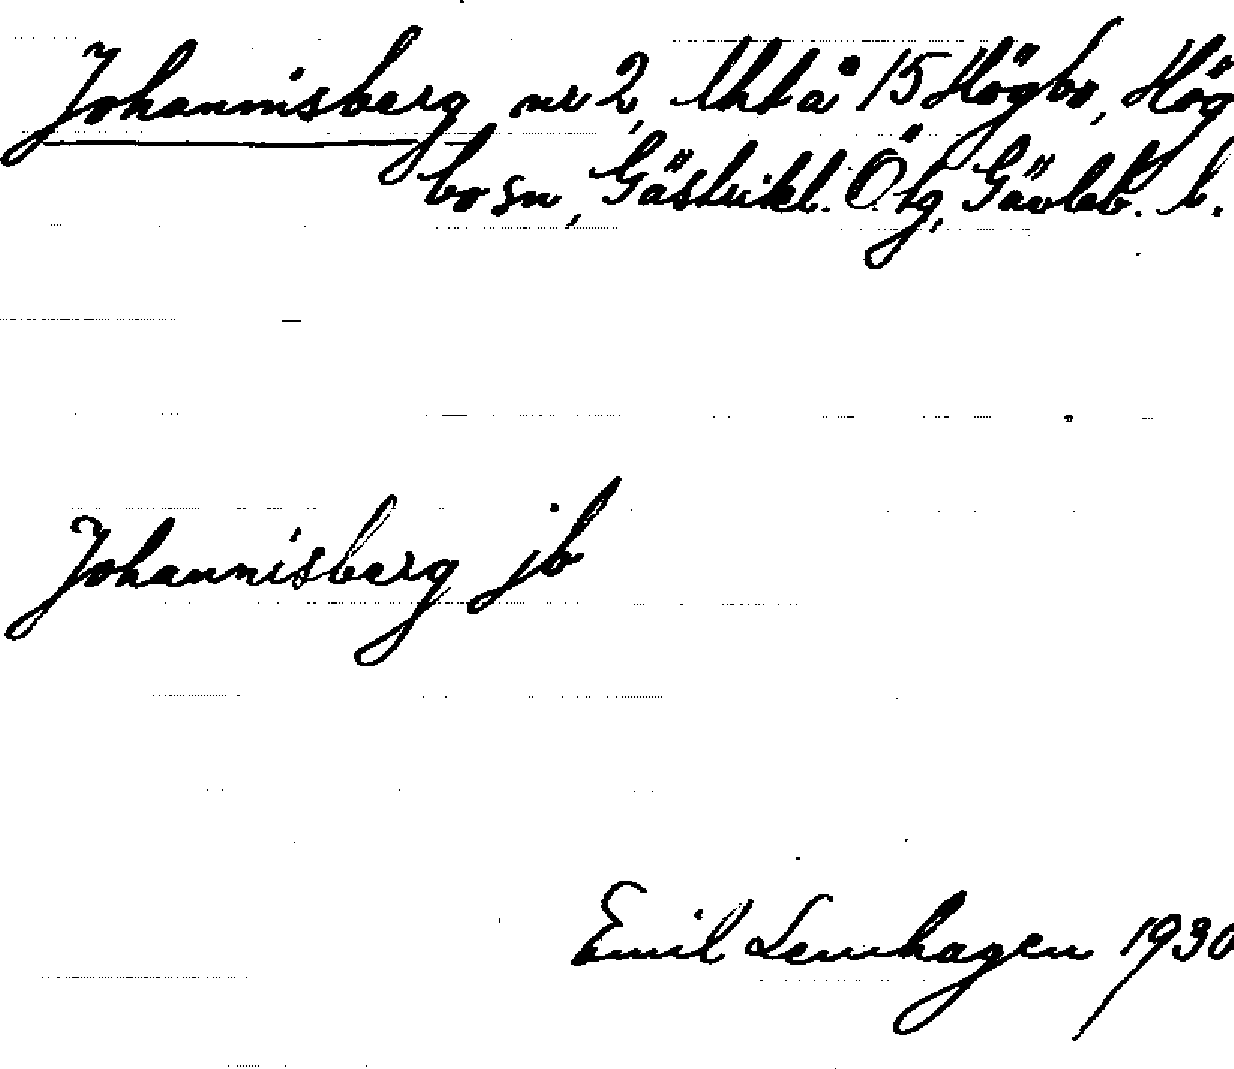 Johannisberg nr 2, lht å 15 Högbo, Hög
bo sn, Gästrikl. Ö tg, Gävleb. l.
Johannisberg jb
Emil Lenhagen 1930